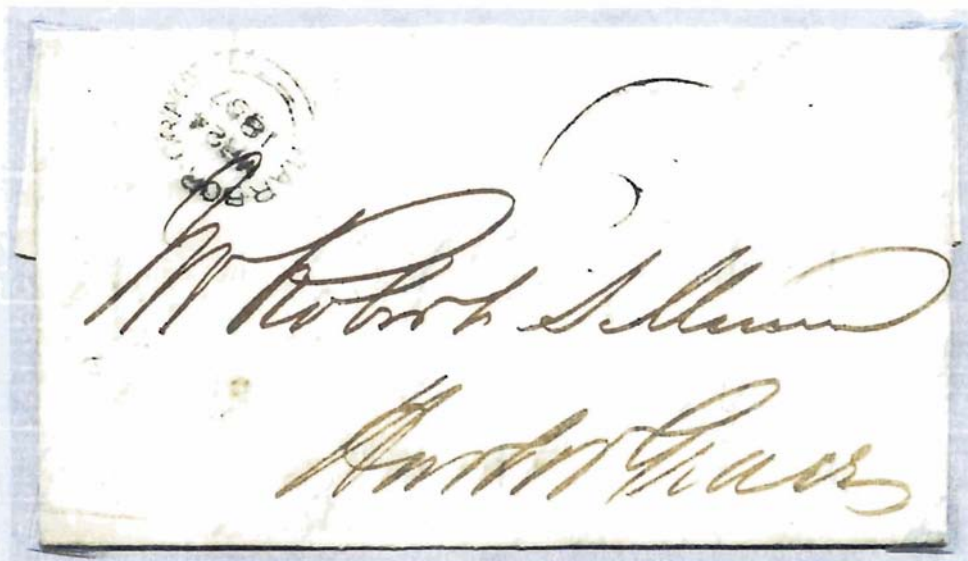 HARBOR GRACE
MR 24
1857
Mr Robert S. Munn
Harbor Grace